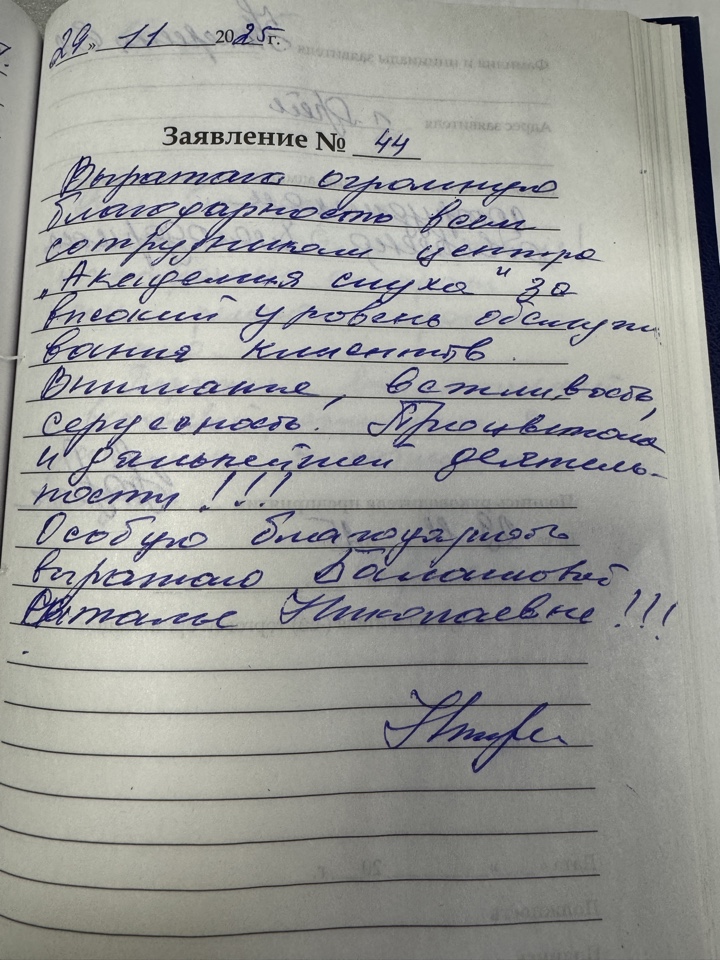 29 » 11 2025 г.
Заявление № 44
Выражаю огромную
благодарность всем
сотрудникам центра
„Академия слуха" за
высокий уровень обслужи
вания клиентов.
Внимание, вежливость,
серьезность! Процветания
и дальнейшей деятель-
ности!!!
Особую благодарность
выражаю Балашовой
Наталье Николаевне!!!